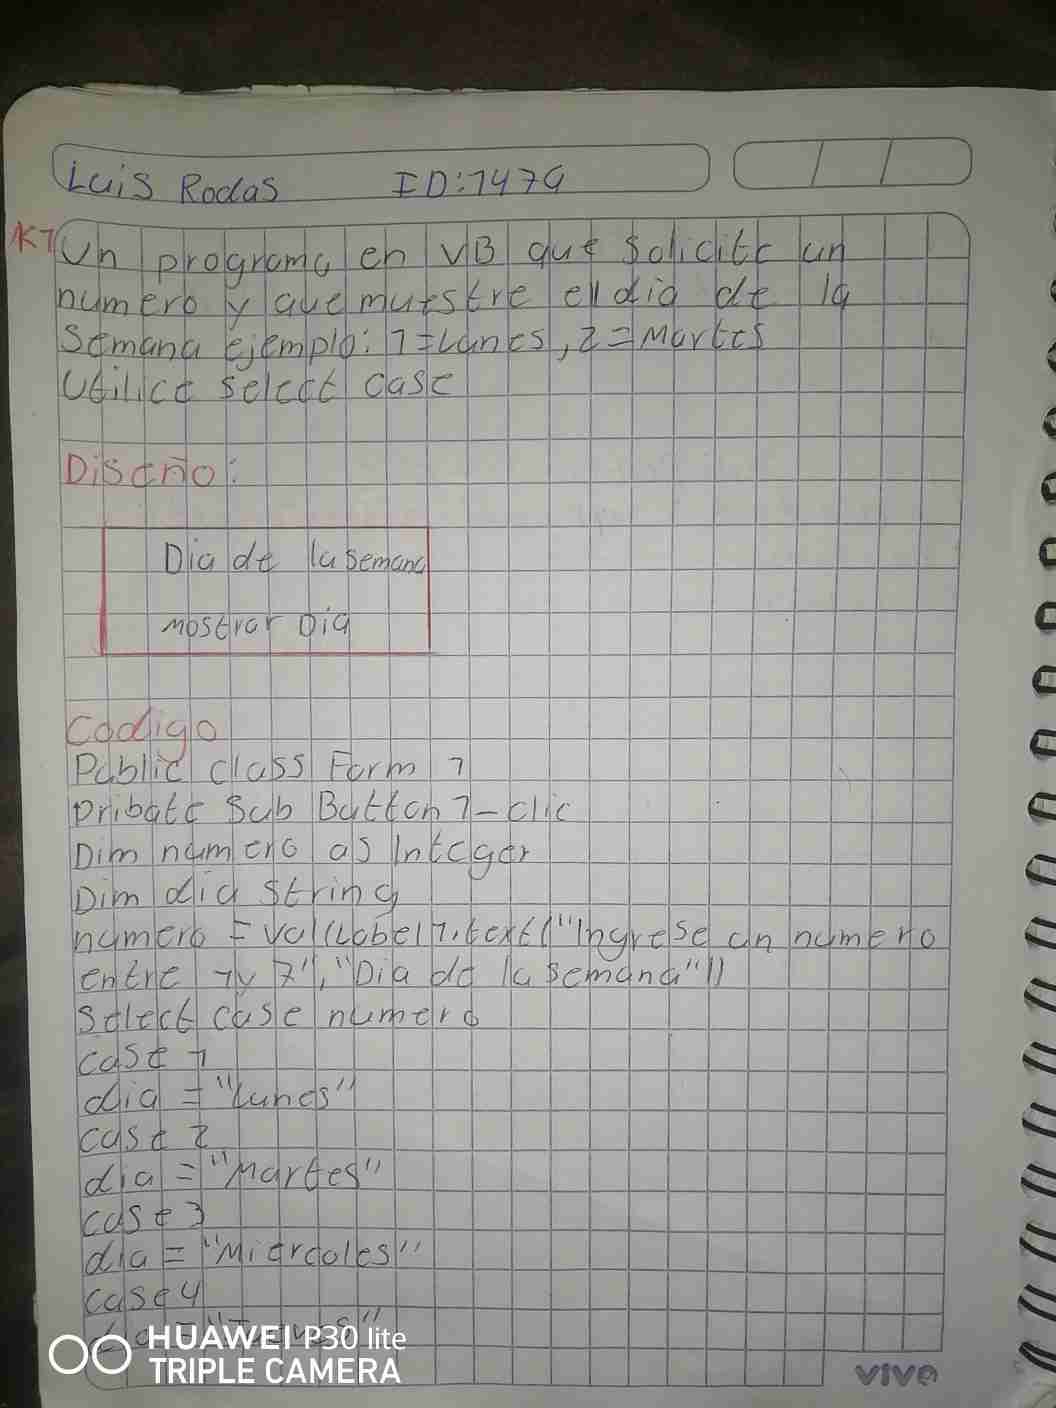 Luis Rodas ID:1479
K1 Un programa en VB que solicite un
numero y que muestre el dia de la
Semana ejemplo: 1=Lunes, 2=Martes
Utilice select case
Diseño:
Dia de la semana
mostrar Dia
Codigo
Public class Form 1
Pribate Sub Button 1-clic
Dim numero as Integer
Dim dia string
numero = Val(Label1.text("Ingrese un numero
entre 1 y 7", "Dia de la semana"))
Select case numero
case 1
dia = "Lunes"
case 2
dia = "Martes"
case 3
dia = "Miercoles"
case 4
dia = "Jueves"
HUAWEI P30 lite
TRIPLE CAMERA
vivo